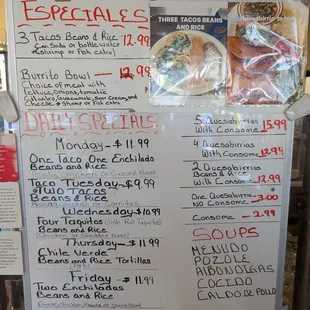 ESPECIALES
3 Tacos Beans & Rice
Can Soda or bottle water 12.99
(shrimp or Fish extra)
Burrito Bowl — 12.99
Choice of meat with
lettuce, onions, tomatoe
Cheese & shrimp or Fish extra
THREE TACOS BEANS
AND RICE
DAILY SPECIALS
Monday - $11.99
One Taco One Enchilado
Beans and Rice
Taco Tuesday - $9.99
Two Tacos
Beans & Rice
Wednesday $10.99
Four Taquitos
Beans and Rice
Thursday - $11.99
Chile Verde
Beans and Rice Tortillas
Friday - $11.99
Two Enchiladas
Beans and Rice
5 Quesabirrias
With Consome 15.99
4 Quesabirrias
With Consome 12.94
2 Quesabirrias
Beans & Rice
With Consome 12.99
One Quesabirria - 3.00
No Consome
Consome - 2.99
SOUPS
MENUDO
POZOLE
ALBONDIGAS
COCIDO
CALDO DE POLLO